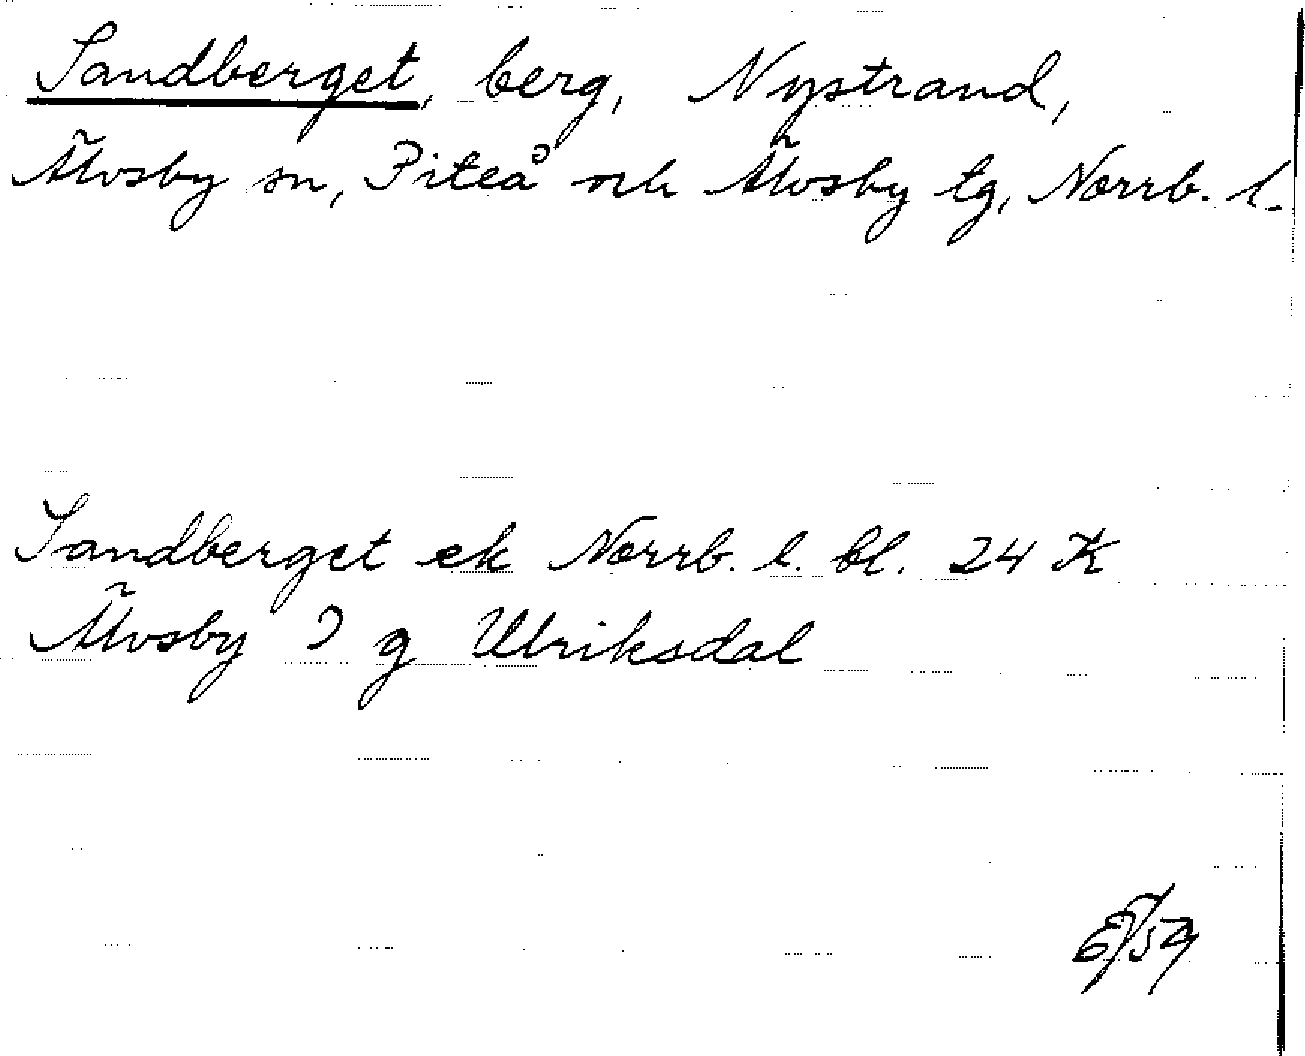 Sandberget, berg, Nystrand,
Älvsby sn, Piteå och Älvsby tg, Norrb. l.
Sandberget ek Norrb. l. bl. 24 K
Älvsby g Ulriksdal